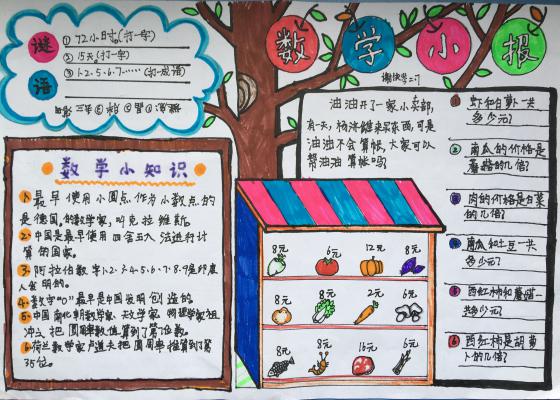 数学小报
谜语
① 72小时。(打一字)
② 15天。(打一字)
③ 1·2·5·6·7·……(打一成语)
数学小知识
1. 最早使用小圆点作为小数点的
是德国的数学家,叫克拉维斯。
2. 中国是最早使用四舍五入法进行计
算的国家。
3. 阿拉伯数字1·2·3·4·5·6·7·8·9是印度
人发明的。
4. 数字"0"最早是中国发明创造的。
5. 中国南北朝数学家、天文学家、物理学家祖
冲之把圆周率数值算到了第七位数。
6. 荷兰数学家卢道夫把圆周率推算到了第
35位。
油油开了一家小卖部,
有一天,
油油不会算帐,大家可以
帮油油算帐吗?
8元 6元 12元 8元
8元 8元 2元 6元
8元 8元 16元 6元
① 虾和白萝卜一共
多少元?
② 南瓜的价格是
蘑菇的几倍?
③ 肉的价格是白菜
的几倍?
④ 南瓜和土豆一共
多少元?
⑤ 西红柿和蘑菇一
共多少元?
⑥ 西红柿是胡萝
卜的几倍?